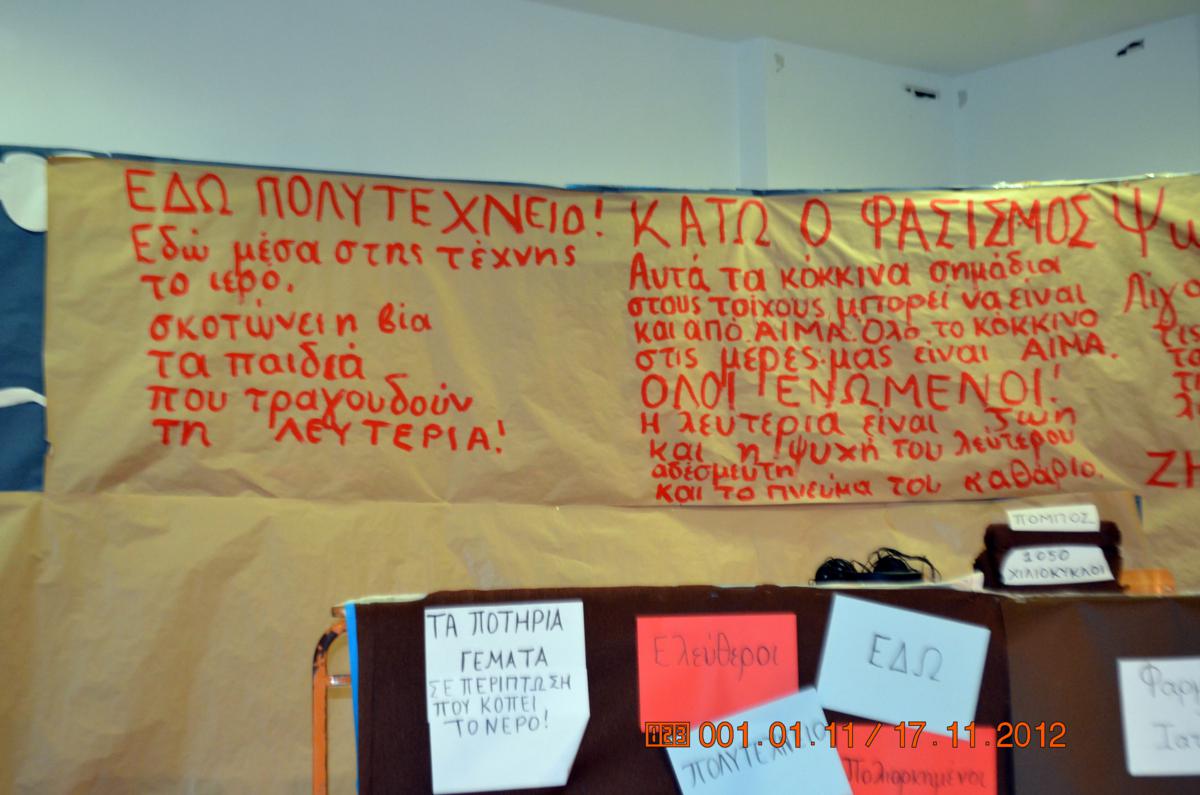 ΕΔΩ ΠΟΛΥΤΕΧΝΕΙΟ!
Εδώ μέσα στης τέχνης
το ιερό,
σκοτώνει η βία
τα παιδιά
που τραχουδούν
τη ΛΕΥΤΕΡΙΑ!
ΚΑΤΩ Ο ΦΑΣΙΣΜΟΣ
Αυτά τα κόκκινα σημάδια
στους τοίχους μπορεί να είναι
και από ΑΙΜΑ. Όλο το κόκκινο
στις μέρες μας είναι ΑΙΜΑ.
ΟΛΟΙ ΕΝΩΜΕΝΟΙ!
Η λευτεριά είναι Ζωή
και η ψυχή του λεύτερου
αδέσμευτη
και το πνεύμα του καθάριο.
ΠΟΜΠΟΣ
1050
ΧΙΛΙΟΚΥΚΛΟΙ
ΤΑ ΠΟΤΗΡΙΑ
ΓΕΜΑΤΑ
ΣΕ ΠΕΡΙΠΤΩΣΗ
ΠΟΥ ΚΟΠΕΙ
ΤΟ ΝΕΡΟ!
Ελεύθεροι
ΕΔΩ
ΠΟΛΥΤΕΧΝΕΙΟ
Πολιορκημένοι
123 001.01.11 / 17.11.2012